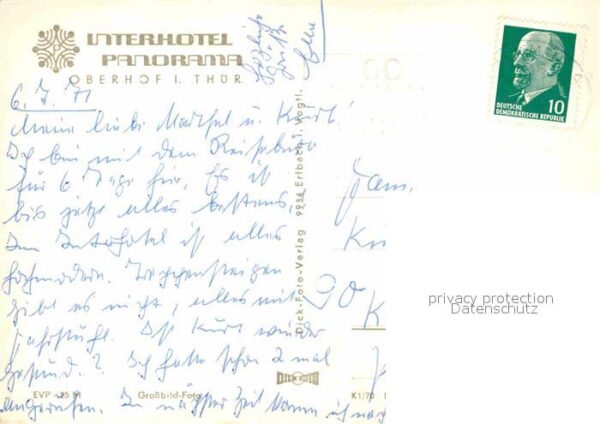 INTERHOTEL
PANORAMA
OBERHOF I. THÜR.
Herzliche
Grüße
6.7.71
Meine liebe Marthel u. Kurt!
Ich bin mit dem Reisebüro
für 6 Tage hier. Es ist
bis jetzt alles bestens,
Im Interhotel ist alles
hochmodern. Treppensteigen
gibt es nicht, alles mit
Fahrstuhl. Ist Kurt wieder
gesund? Ich hatte schon 2 mal
angerufen. In nächster Zeit komme ich
EVP -,25 M
Großbild-Foto
Dick-Foto-Verlag 9934 Erlbach i. Vogtl.
DICK FOTO
K1/70
DEUTSCHE
DEMOKRATISCHE REPUBLIK
10
Fam.
90
privacy protection
Datenschutz